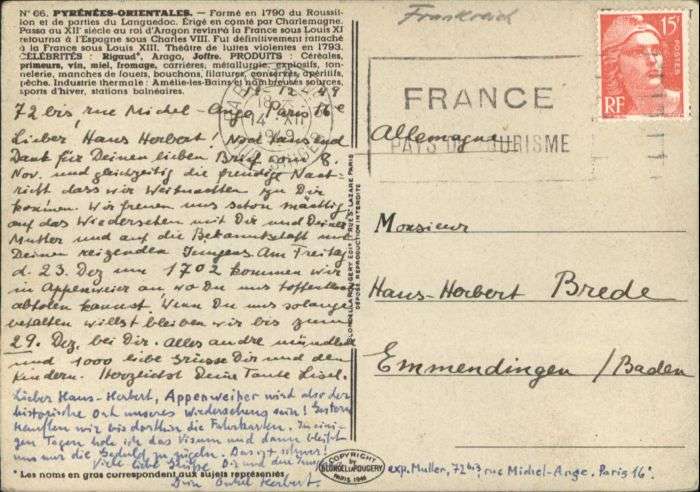 N° 66. PYRÉNÉES-ORIENTALES. — Formé en 1790 du Roussil-
lon et de parties du Languedoc. Érigé en comté par Charlemagne.
Passa au XII° siècle au roi d'Aragon revint à la France sous Louis XI
retourna à l'Espagne sous Charles VIII. Fut définitivement rattaché
à la France sous Louis XIII. Théâtre de luttes violentes en 1793.
CÉLÉBRITÉS : Rigaud*, Arago, Joffre. PRODUITS : Céréales,
primeurs, vin, miel, fromage, carrières, métallurgie, explosifs, ton-
nelerie, manches de fouets, bouchons, filatures, conserves, apéritifs,
pêche. Industrie thermale : Amélie-les-Bains et nombreuses sources,
sports d'hiver, stations balnéaires.
13-12-49
72 bis, rue Michel-Ange Paris 16e
Lieber Hans Herbert. Noch tausend
Dank für Deinen lieben Brief vom 8.
Nov. und gleichzeitig die freudige Nach-
richt dass wir Weihnachten zu Dir
kommen. Wir freuen uns schon mächtig
auf das Wiedersehen mit Dir und Deiner
Mutter und auf die Bekanntschaft mit
Deinen reizenden Jungens. Am Freitag
d. 23. Dez um 1702 kommen wir
in Appenweier an wo Du uns hoffentlich
abholen kannst. Wenn Du uns solange
behalten willst bleiben wir bis zum
29. Dez. bei Dir. Alles andre mündlich
und 1000 liebe Grüsse Dir und den
Kindern. Herzlichst Deine Tante Lisel.
Lieber Hans-Herbert, Appenweiher wird also der
historische Ort unseres Wiedersehens sein! Gestern
kauften wir bis dorthin die Fahrkarten. In eini-
gen Tagen hole ich das Visum und dann bleibt
uns nur die Geduld zu zügeln. Das ist schwer!
Viele liebe Grüsse Dir und den Jungens
Dein Onkel Herbert.
* Les noms en gras correspondent aux sujets représentés.
BLONDEL LA ROUGERY EDIT. 7 RUE St LAZARE PARIS
DÉPOSÉ REPRODUCTION INTERDITE
COPYRIGHT
by
BLONDEL LA ROUGERY
PARIS 1946
Frankreich
15F
POSTES
RF
PARIS
18H
14 XII
1949
FRANCE
PAYS DU TOURISME
Allemagne
Monsieur
Hans-Herbert Brede
Emmendingen /Baden
exp. Muller, 72 bis rue Michel-Ange. Paris 16e.